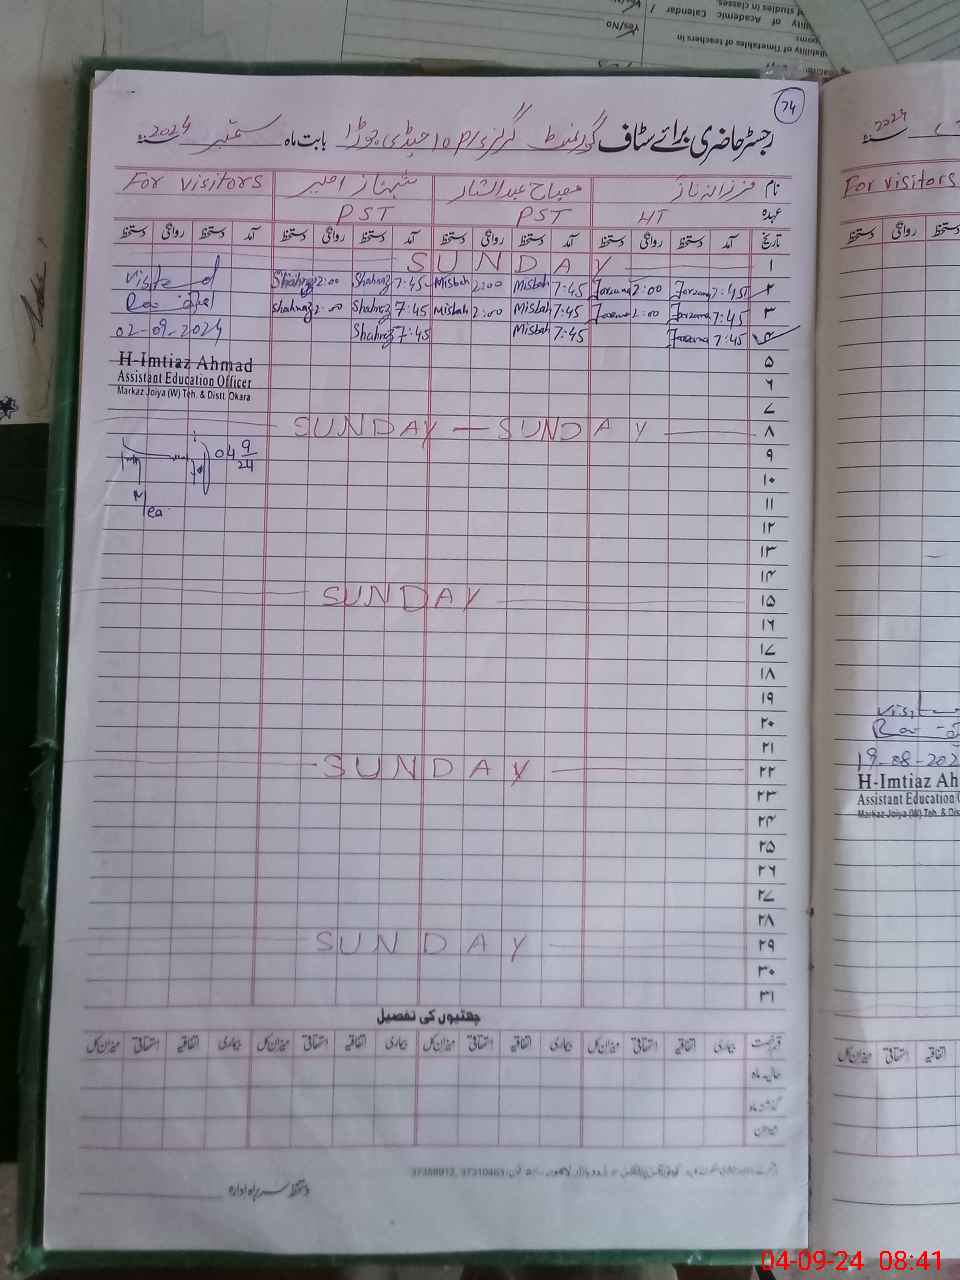 74
رجسٹر حاضری برائے سٹاف گورنمنٹ گرلز بابت ماہ ستمبر 2024
نام فرزانہ ناز مصباح عبدالستار شہناز اختر For visitors
عہدہ HT PST PST
تاریخ آمد دستخط روانگی دستخط آمد دستخط روانگی دستخط آمد دستخط روانگی دستخط آمد دستخط روانگی دستخط
۱ SUNDAY
۲ 7:45 Farzana 2:00 Farzana 7:45 Misbah 2:00 Misbah 7:45 Shahnaz 2:00 Shahnaz
۳ 7:45 Farzana 2:00 Farzana 7:45 Misbah 2:00 Misbah 7:45 Shahnaz 2:00 Shahnaz
۴ 7:45 Farzana 7:45 Misbah 7:45 Shahnaz
Visited
02-09-2024
H-Imtiaz Ahmad
Assistant Education Officer
Markaz Joiya (W) Teh. & Distt. Okara
۵
۶
۷
۸ SUNDAY — SUNDAY
04 9/24
۹
۱۰
۱۱
۱۲
۱۳
۱۴
۱۵ SUNDAY
۱۶
۱۷
۱۸
۱۹
۲۰
۲۱
۲۲ SUNDAY
۲۳
۲۴
۲۵
۲۶
۲۷
۲۸
۲۹ SUNDAY
۳۰
۳۱
چھٹیوں کی تفصیل
قسم رخصت بیماری اتفاقیہ استحقاقی میزان کل بیماری اتفاقیہ استحقاقی میزان کل بیماری اتفاقیہ استحقاقی میزان کل بیماری اتفاقیہ استحقاقی میزان کل
حالیہ ماہ
گذشتہ ماہ
میزان
دستخط سربراہ ادارہ
2024
For visitors
دستخط روانگی دستخط
19-08-202
H-Imtiaz Ah
Assistant Education
Markaz Joiya (W) Teh. & Dist
اتفاقیہ استحقاقی میزان کل
of studies in classes.
ility of Academic Calendar /
Yes/No
ilability of Timetables of teachers in
04-09-24 08:41